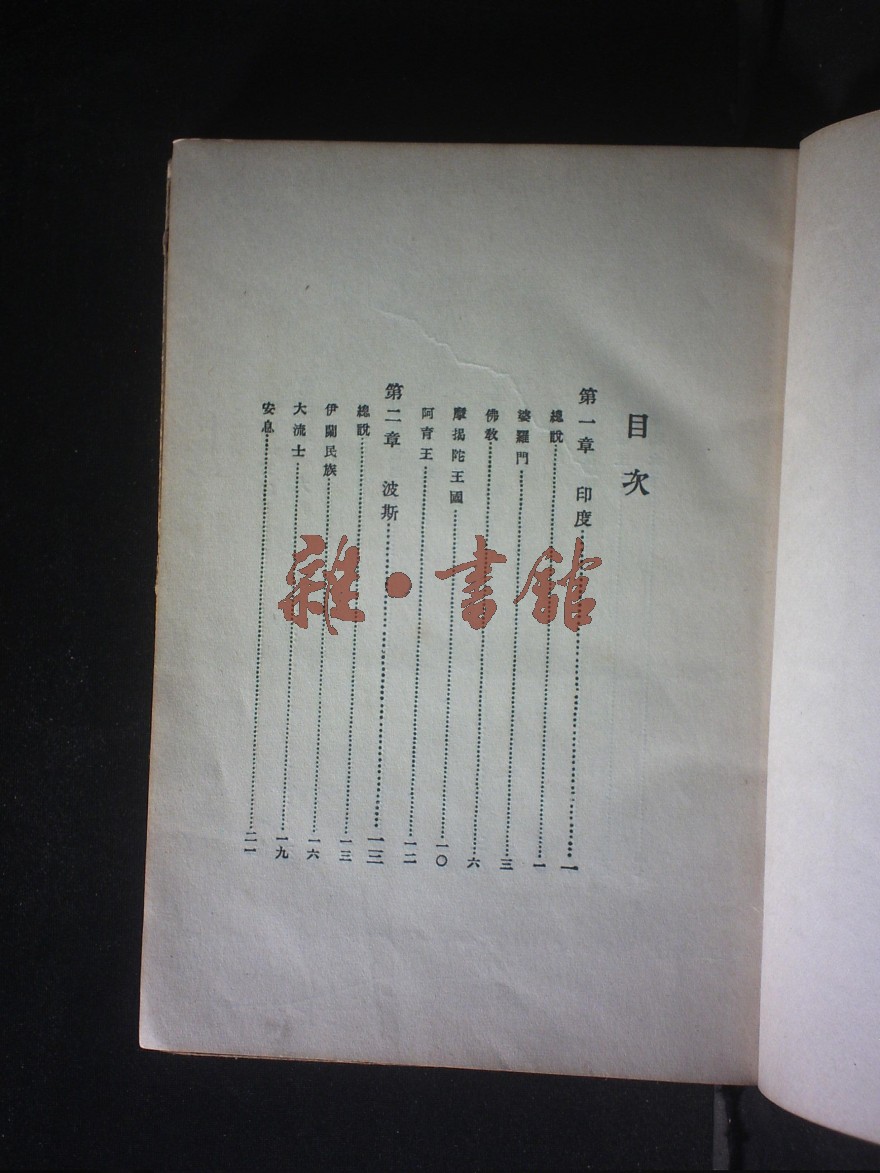 目次
第一章 印度……一
總說……一
婆羅門……三
佛教……六
摩揭陀王國……一〇
阿育王……一二
第二章 波斯……一三
總說……一三
伊蘭民族……一六
大流士……一九
安息……二一
雜·書館